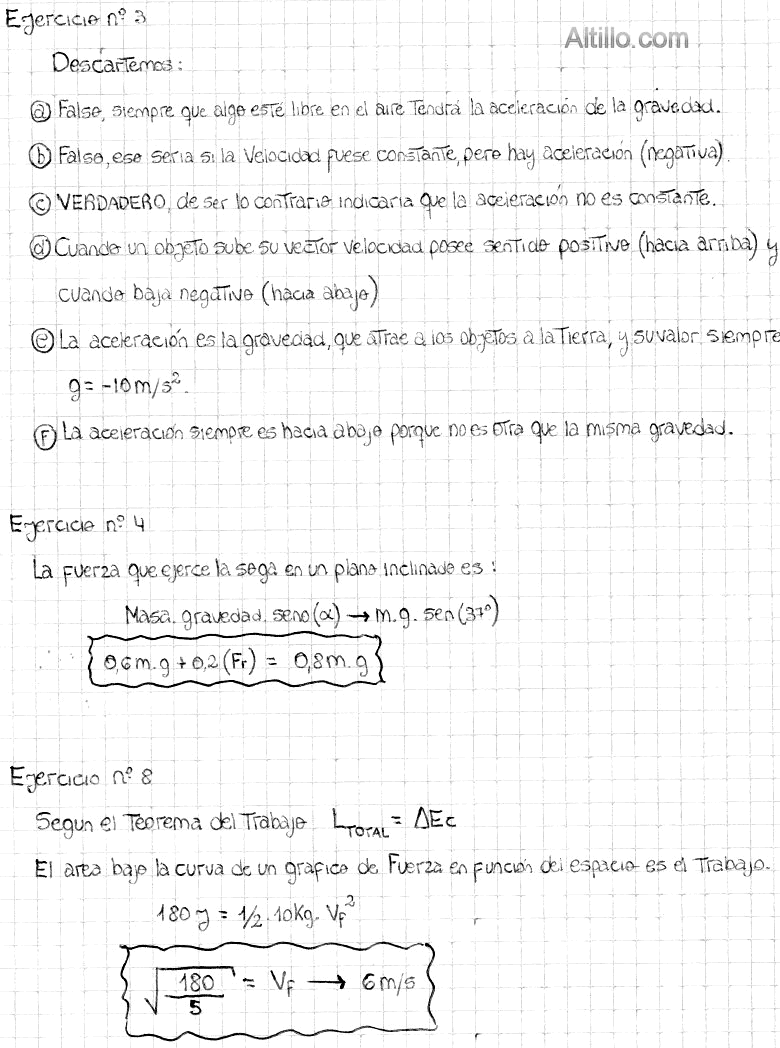 Ejercicio nº 3
Altillo.com
Descartemos:
a Falso, siempre que algo esté libre en el aire tendrá la aceleración de la gravedad.
b Falso, eso seria si la velocidad fuese constante, pero hay aceleración (negativa).
c VERDADERO, de ser lo contrario indicaria que la aceleración no es constante.
d Cuando un objeto sube su vector velocidad posee sentido positivo (hacia arriba) y
cuando baja negativo (hacia abajo)
e La aceleración es la gravedad, que atrae a los objetos a la Tierra, y su valor siempre
g = -10 m/s².
F La aceleración siempre es hacia abajo porque no es otra que la misma gravedad.
Ejercicio nº 4
La fuerza que ejerce la soga en un plano inclinado es:
Masa. gravedad. seno(α) → m.g. sen(37º)
0,6m.g + 0,2(Fr) = 0,8m.g
Ejercicio nº 8
Segun el Teorema del Trabajo L_TOTAL = ΔEc
El area bajo la curva de un grafico de Fuerza en función del espacio es el Trabajo.
180 J = 1/2 . 10Kg. Vf²
√(180/5) = Vf → 6 m/s